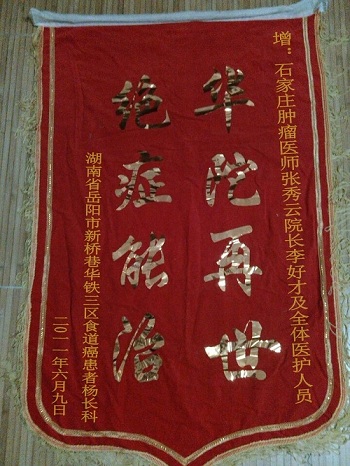 增：石家庄肿瘤医师张秀云院长李好才及全体医护人员
华陀再世
绝症能治
湖南省岳阳市新桥巷华铁三区食道癌患者杨长科
二〇一一年六月九日